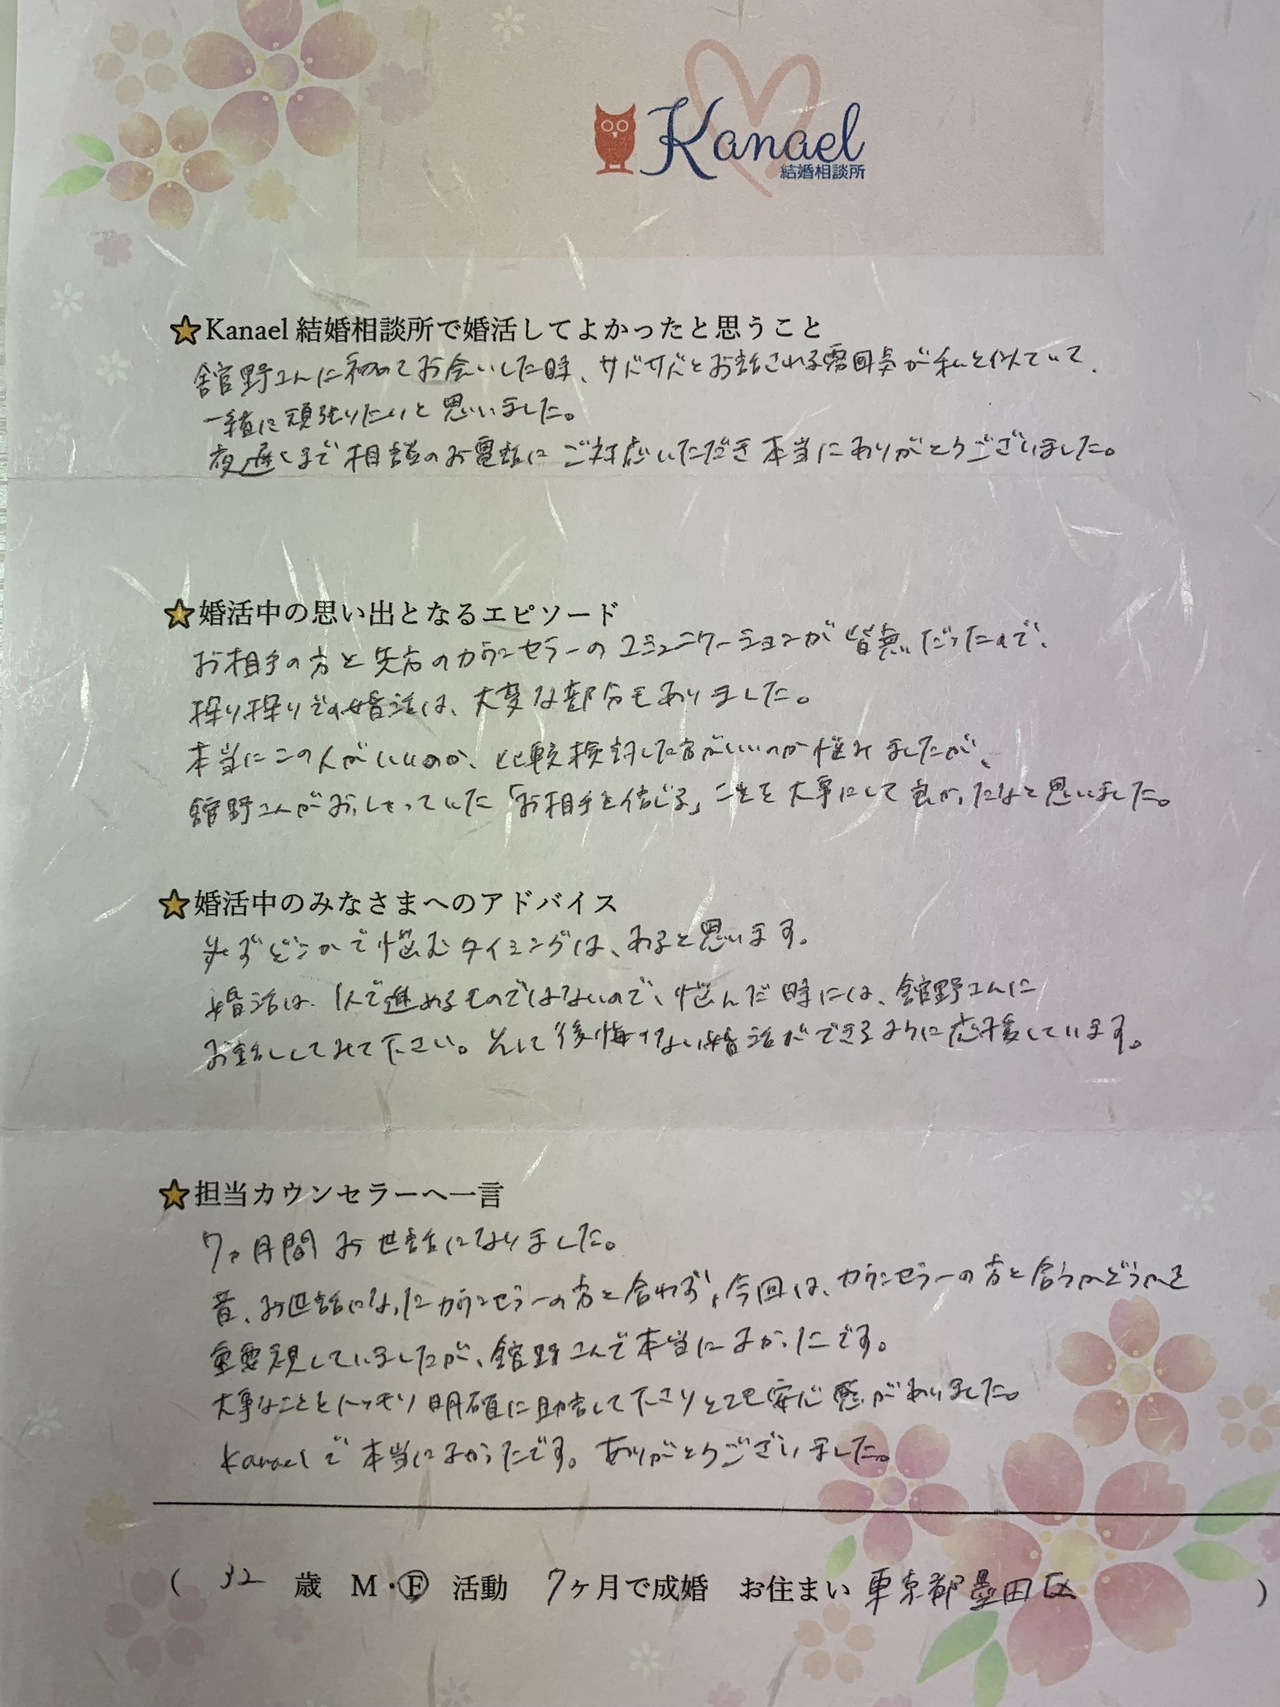 Kanael
結婚相談所
★Kanael 結婚相談所で婚活してよかったと思うこと
舘野さんに初めてお会いした時、サバサバとお話される雰囲気が私と似ていて、
一緒に頑張りたいと思いました。
夜遅くまで相談のお電話にご対応いただき本当にありがとうございました。
★婚活中の思い出となるエピソード
お相手の方と先方のカウンセラーのコミュニケーションが皆無だったので、
探り探りでの婚活は、大変な部分もありました。
本当にこの人がいいのか、比較検討した方がいいのか悩みましたが、
舘野さんがおっしゃっていた「お相手を信じる」ことを大事にして良かったなと思いました。
★婚活中のみなさまへのアドバイス
必ずどこかで悩むタイミングは、あると思います。
婚活は、1人で進めるものではないので、悩んだ時には、舘野さんに
お話ししてみて下さい。そして後悔のない婚活ができるように応援しています。
★担当カウンセラーへ一言
7ヶ月間お世話になりました。
昔、お世話になったカウンセラーの方と合わず、今回は、カウンセラーの方と合うかどうかを
重要視していましたが、舘野さんで本当によかったです。
大事なことをハッキリ明確に助言して下さりとても安心感がありました。
Kanaelで本当によかったです。ありがとうございました。
( 32 歳 M・F 活動 7ヶ月で成婚 お住まい 東京都墨田区 )